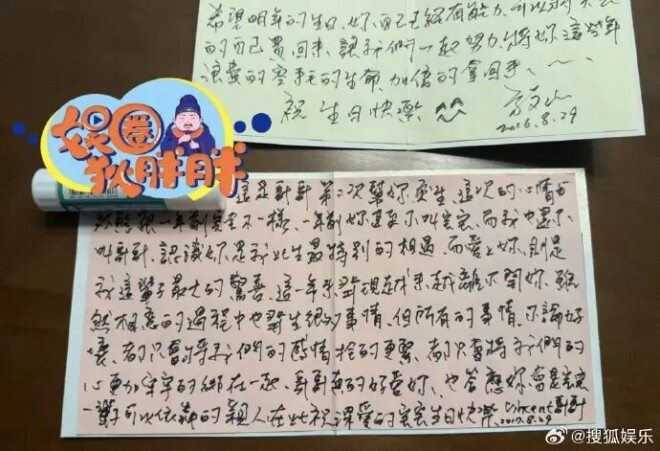 希望明年的生日,妳自己已經有能力,可以將失去
的自己買回來,讓我們一起努力將妳這些年
浪費的空乏的生命,加倍的拿回來、~、
祝 生日快樂
2016.8.29
娱圈
扒胖胖
這是哥哥第二次幫妳慶生,這次的心情與
狀態跟一年前完全不一樣、一年前妳甚至不叫宏宏、而我也還不
叫哥哥、認識妳是我此生最特別的相遇、而愛上妳、則是
我這輩子最大的驚喜、這一年來發現越來越離不開妳、雖
然相處的過程中也發生很多事情、但所有的事情、不論好
壞、都只會將我們的感情拴的更緊、都只會將我們的
心更加牢牢的綁在一起、哥哥真的好愛妳、也答應妳會是
一輩子可以依靠的親人在此祝深愛的 生日快樂 Vincent哥哥
2017.8.29
@搜狐娱乐